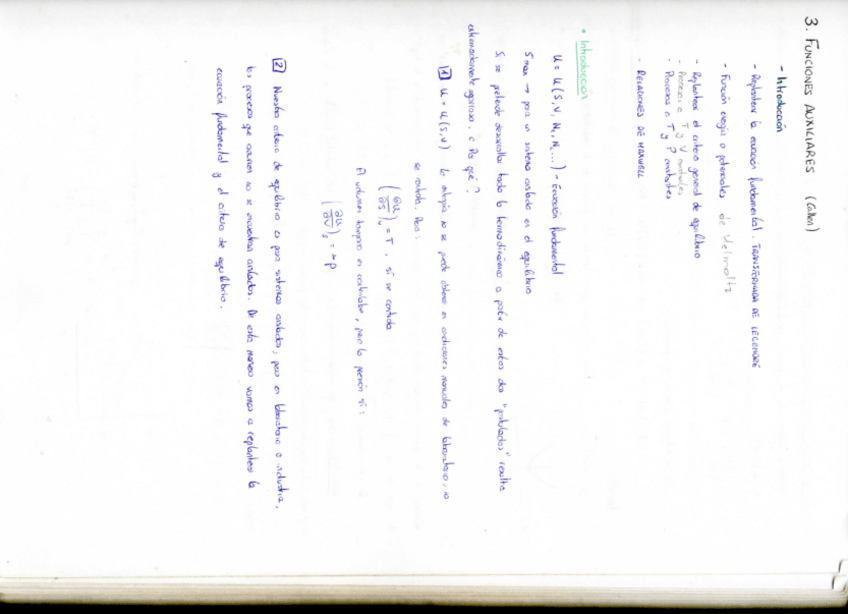 3. FUNCIONES AUXILIARES (Callen)
- Introducción
- Replantear la ecuación fundamental. TRANSFORMADA DE LEGENDRE
- Función energía o potenciales de Helmoltz
- Replantear el criterio general de equilibrio
· Procesos a T y V constantes
· Procesos a T y P constantes
- RELACIONES DE MAXWELL
• Introducción
U = U(S,V, N₁, N₂ ...) - Ecuación fundamental
S max → para un sistema aislado en el equilibrio
Si se pretende desarrollar toda la termodinámica a partir de estos dos "postulados" resulta
extremadamente agotador. ¿Por qué?
1 U = U(S,V) La entropía no se puede obtener en condiciones normales de laboratorio, no
se controla. Pero:
(∂U/∂S)ᵥ = T, sí se controla
El volumen tampoco es controlable, pero la presión sí:
(∂U/∂V)ₛ = -P
2 Nuestro criterio de equilibrio es para sistemas aislados, pero en laboratorio o industria,
los procesos que ocurren no se encuentran aislados. De esta manera vamos a replantear la
ecuación fundamental y el criterio de equilibrio.